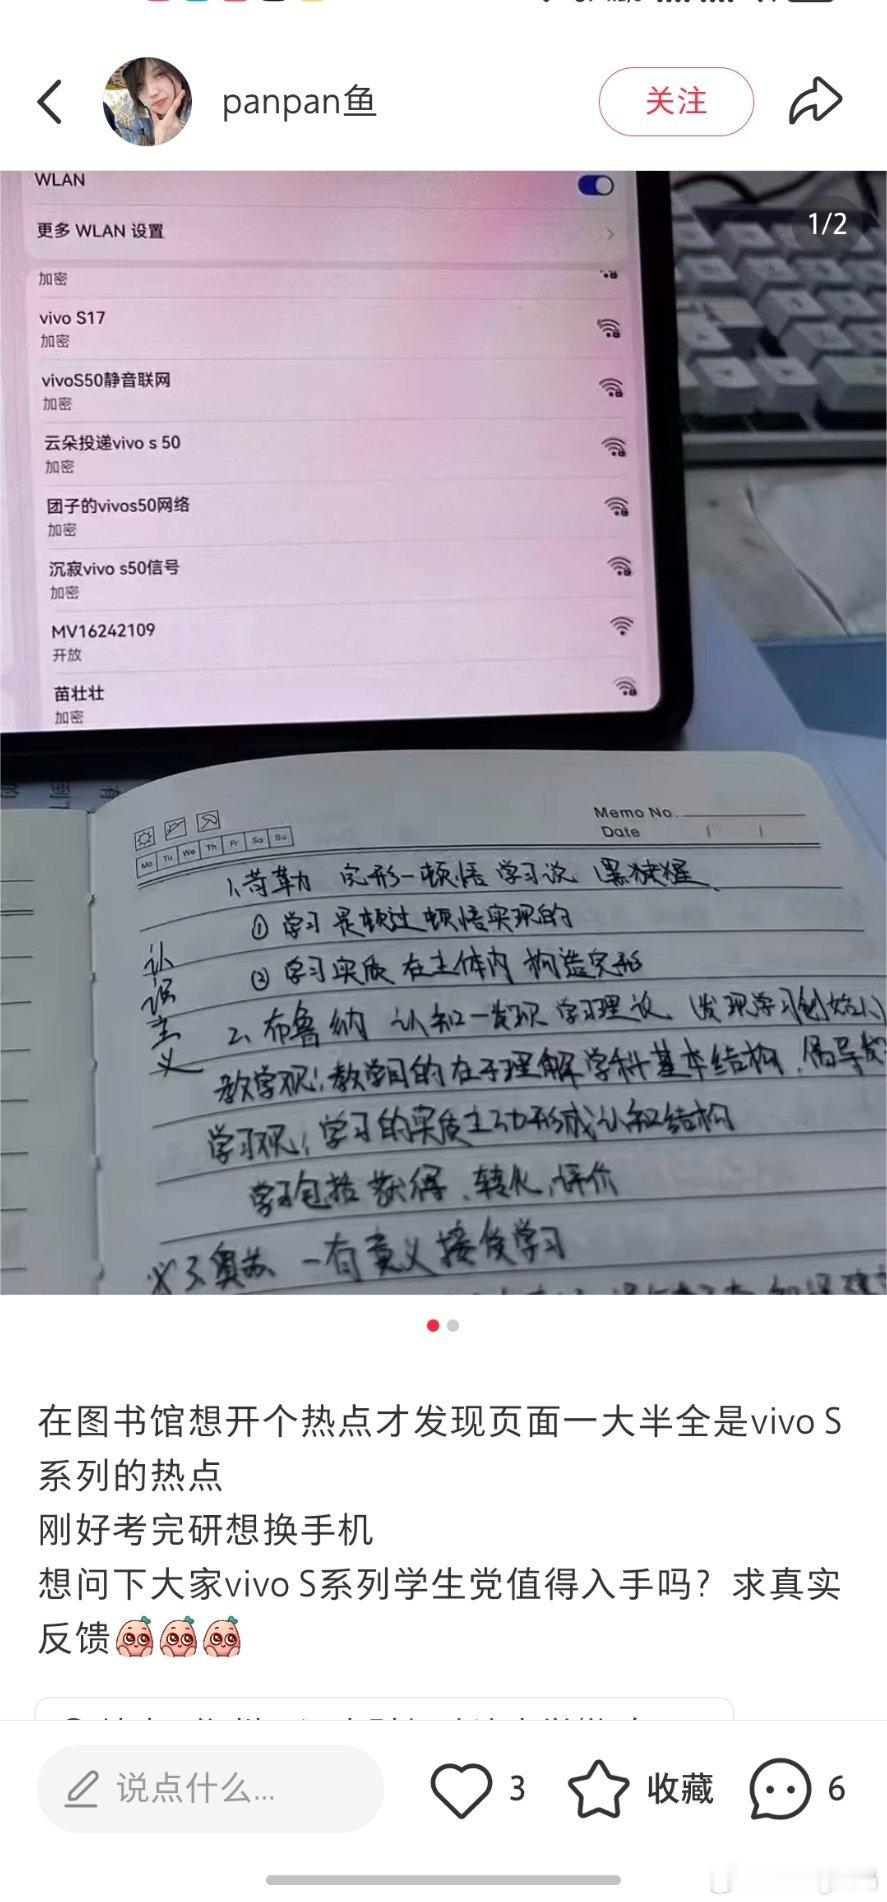 panpan鱼
关注
1/2
WLAN
更多 WLAN 设置
加密
vivo S17
加密
vivoS50静音联网
加密
云朵投递vivo s 50
加密
团子的vivos50网络
加密
沉寂vivo s50信号
加密
MV16242109
开放
苗壮壮
加密
Memo No.
Date
Mo Tu We Th Fr Sa Su
1、苛勒 完形一顿悟 学习说 黑猩猩
① 学习是顿过顿悟实现的
② 学习实质 在主体内 构造完形
认识主义
2、布鲁纳 认知一发现 学习理论 (发现学习创始人)
教学观:教学目的在于理解学科基本结构,倡导发
学习观:学习的实质主动形成认知结构
学习包括 获得、转化、评价
3 奥苏 一有意义接受学习
在图书馆想开个热点才发现页面一大半全是vivo S
系列的热点
刚好考完研想换手机
想问下大家vivo S系列学生党值得入手吗？求真实
反馈
说点什么...
3
收藏
6